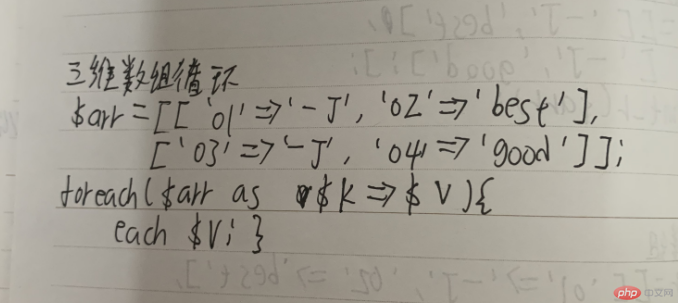 三维数组循环
$arr=[['01'=>'-J','02'=>'best'],
['03'=>'-J','04'=>'good']];
foreach($arr as $k=>$v){
each $v;}
php 中文网